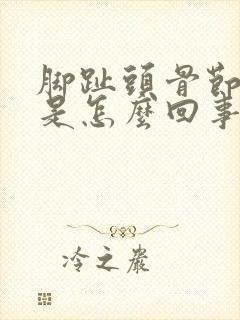 脚趾頭骨節
是怎麼回事
冷之巖